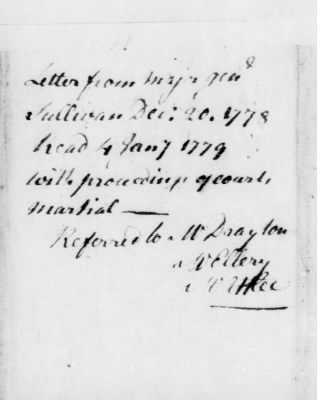 Letter from Majr genl
Sullivan Decr 20. 1778
Read 4 Jany 1779
with proceedings of court
martial —
Referred to Mr Drayton
Mr Ellery
Mr